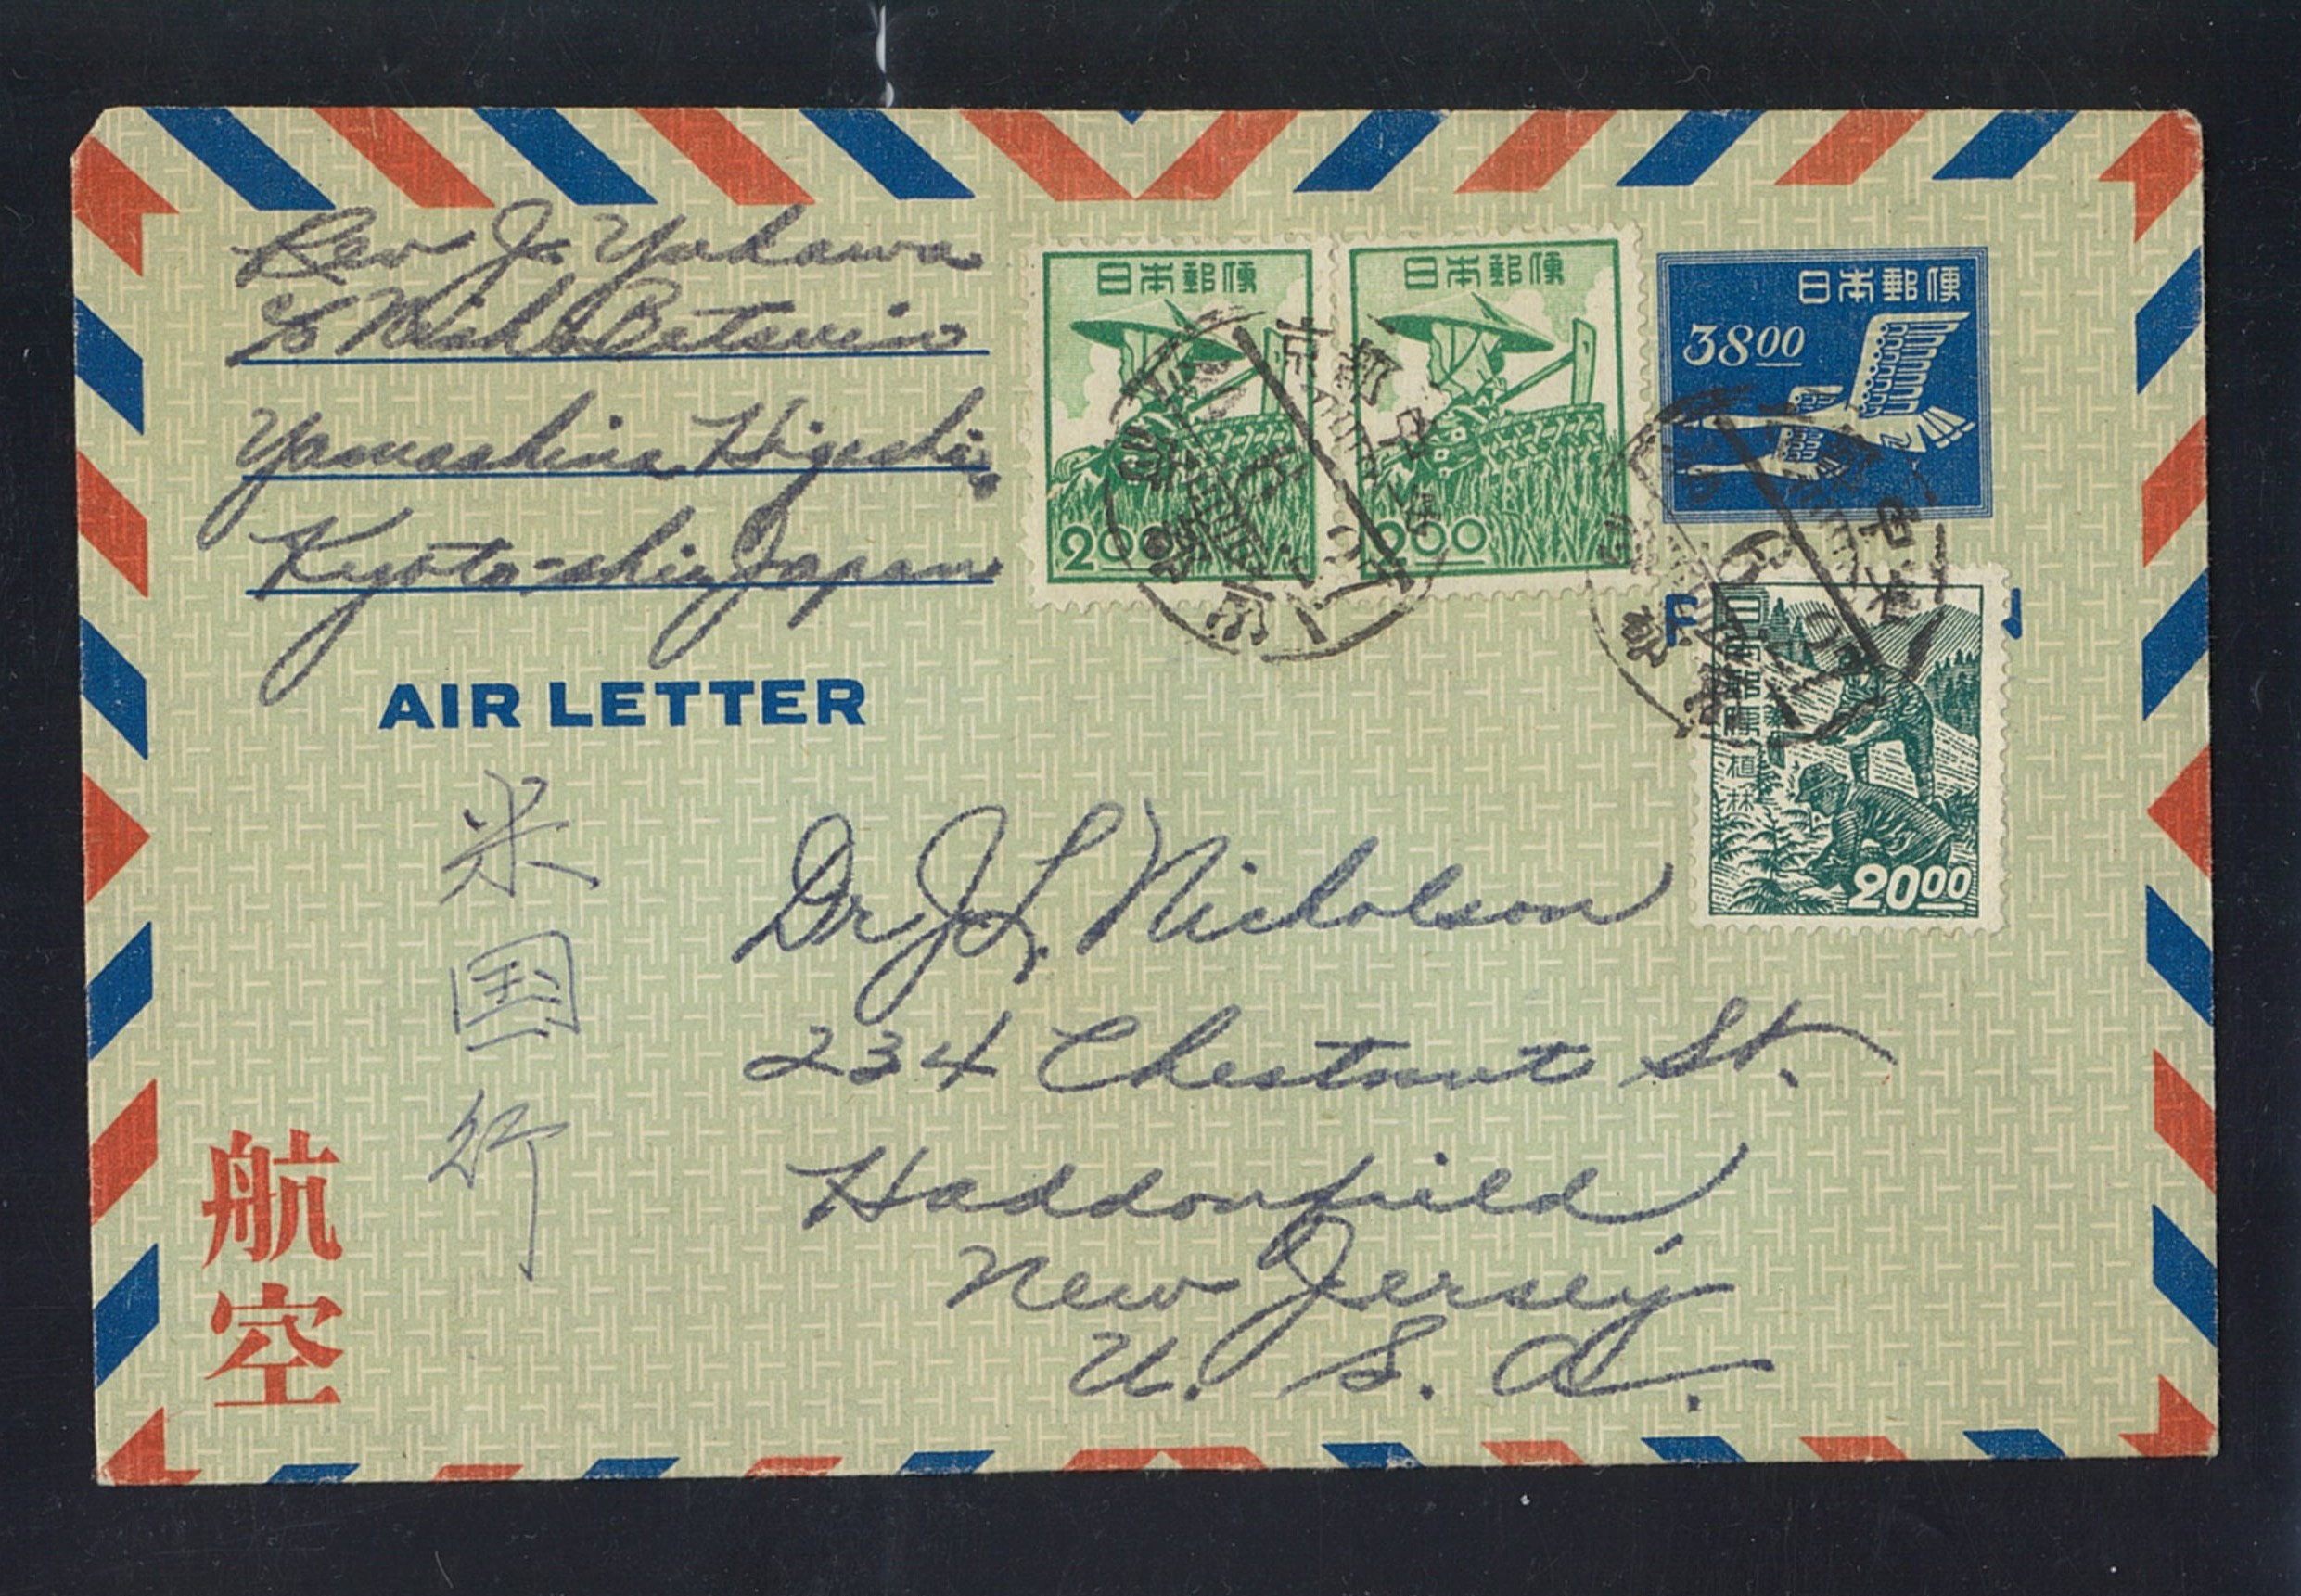 Rev J. Yukawa
c/o Nishi Betsuin
Yamashina Higashi,
Kyoto-shi, Japan
日本郵便
2.00
日本郵便
2.00
日本郵便
3800
京都中央
植林
20.00
AIR LETTER
米国行
航空
Dr J. L. Nicholson
234 Chestnut St.
Haddonfield
New Jersey
U. S. A.